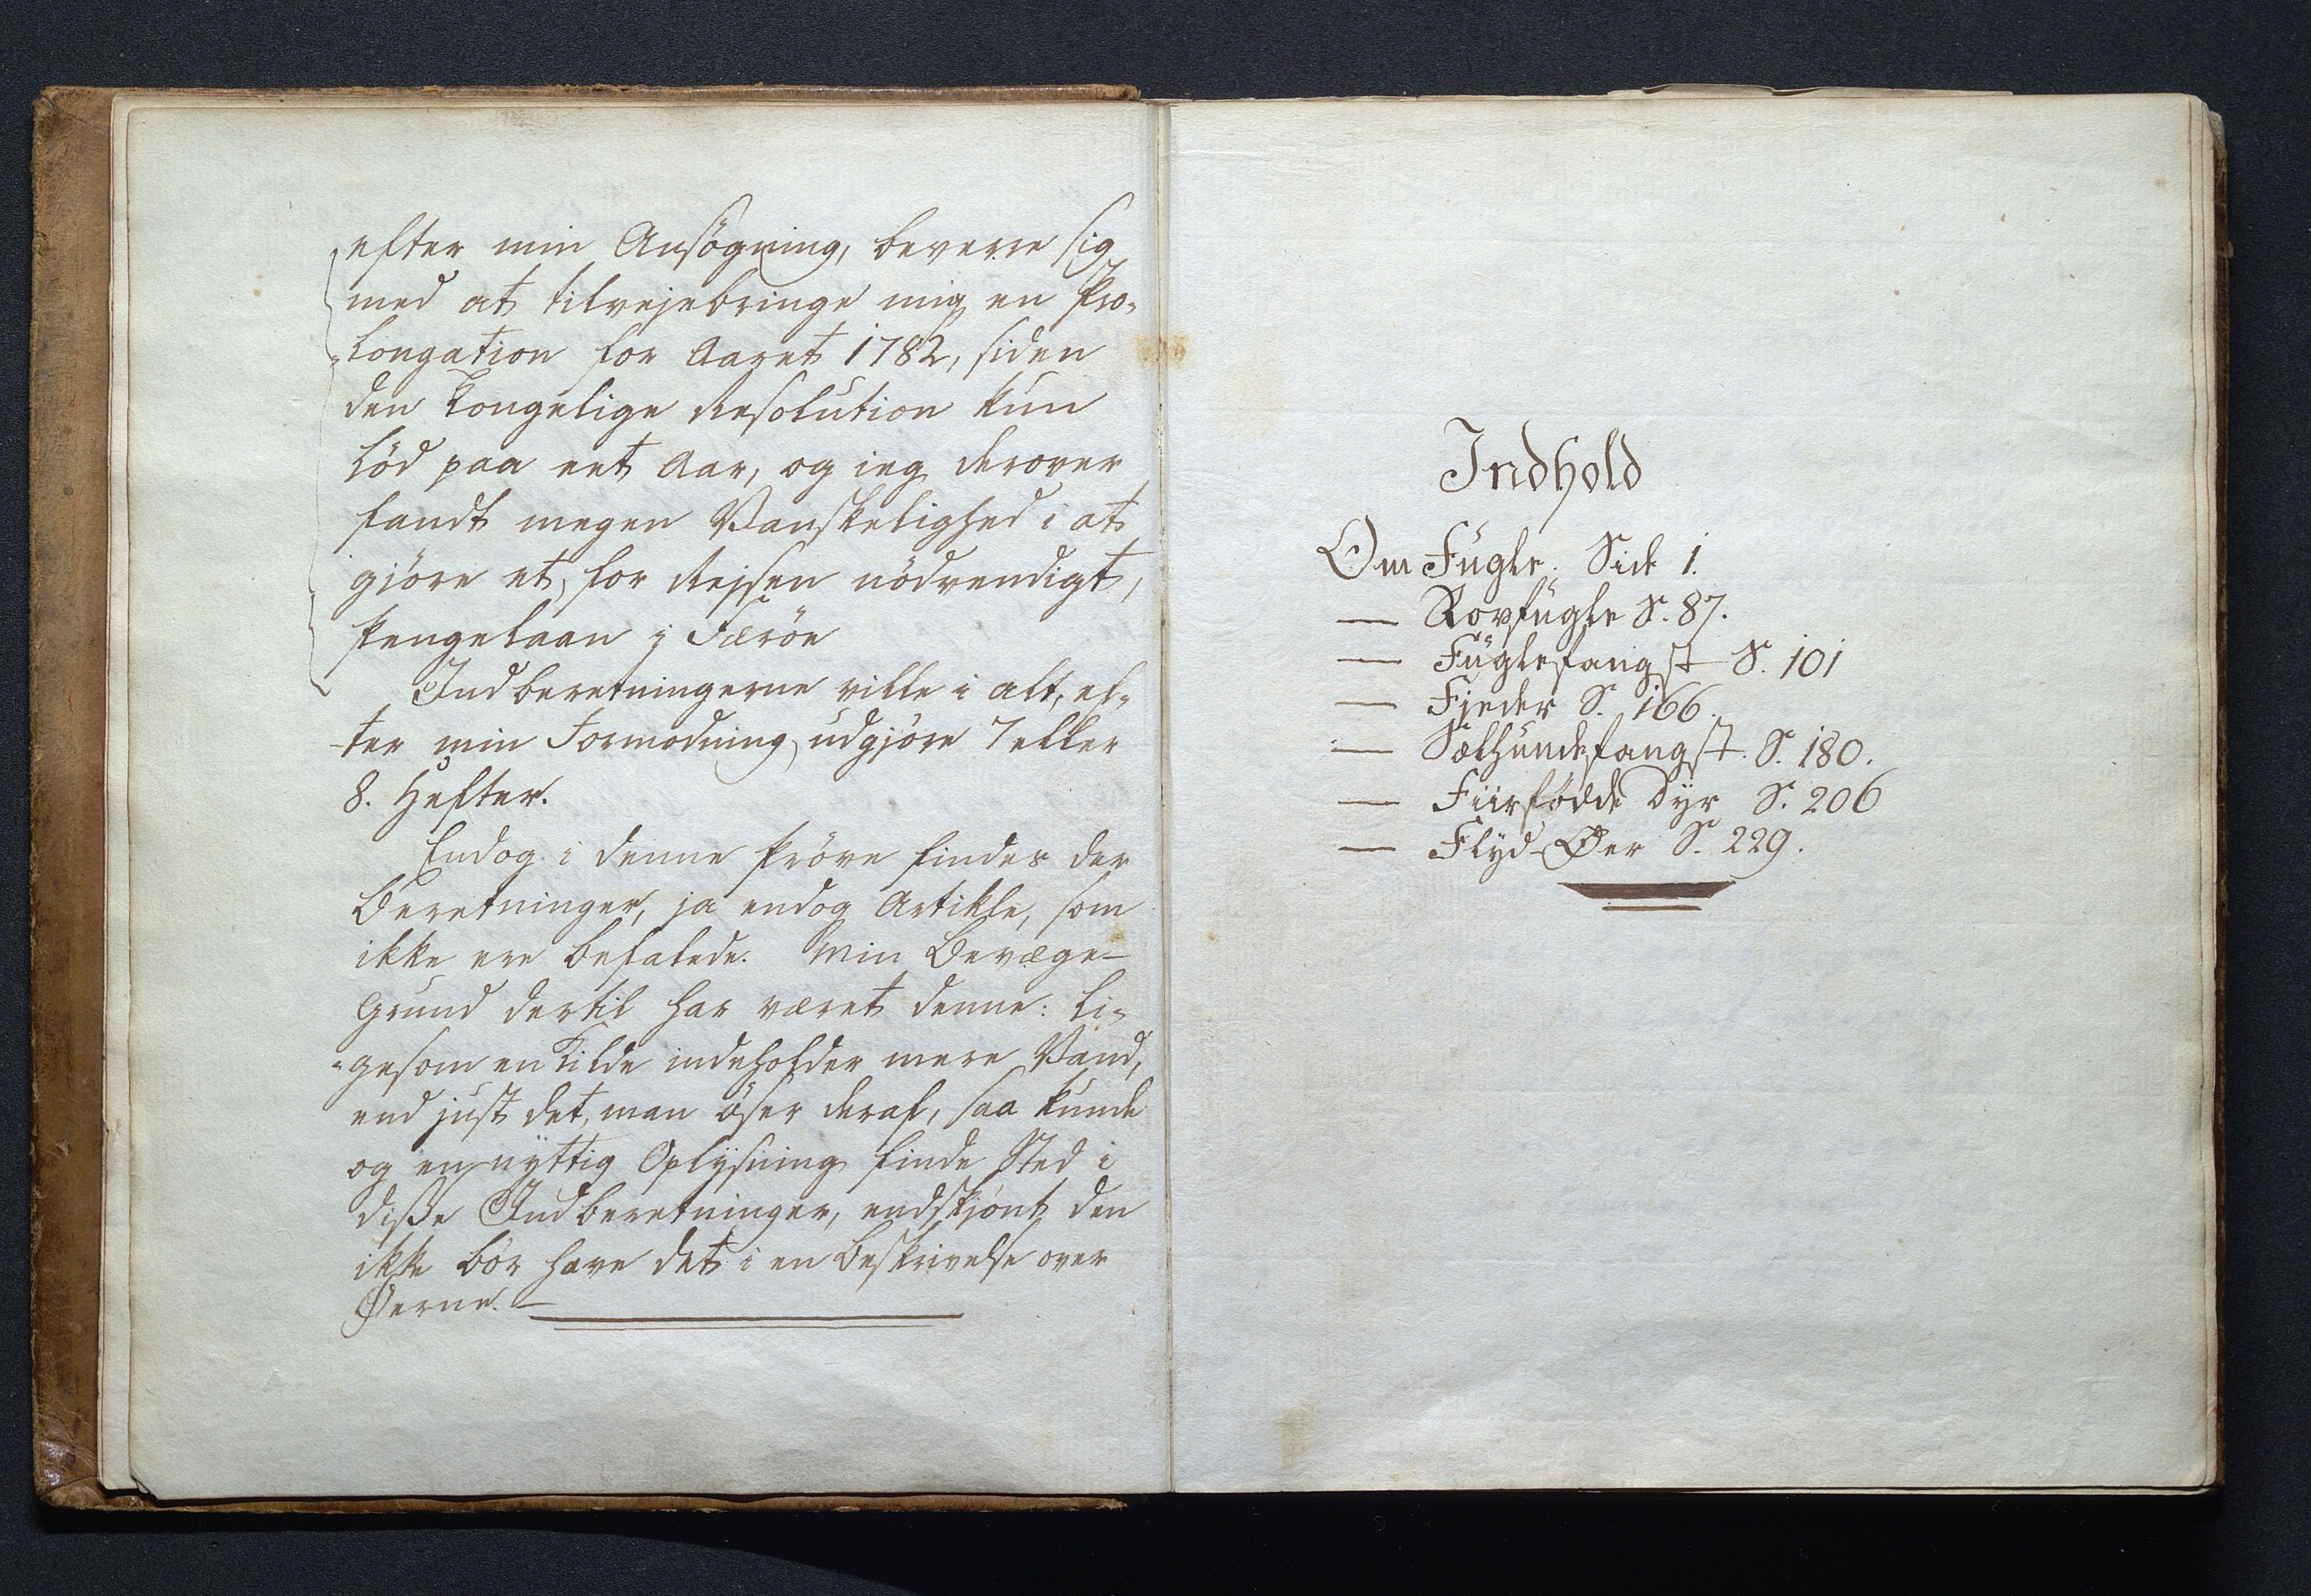 efter min Ansögning, beverre sig
med at tilvejebringe mig en Pro-
-longation for Aaret 1782, siden
den Kongelige Resolution kun
löd paa eet Aar, og ieg derover
fandt megen Vanskelighed i at
giöre et, for Rejsen nödvendigt,
Pengelaan i Færöe
Indberetningerne ville i alt, ef-
-ter min Formodning, udgjöre 7 eller
8. Hefter.
Endog i denne Pröve findes der
Beretninger, ja endog Artikle, som
ikke ere befalede. Min Bevæge-
Grund dertil har været denne: Li-
-gesom en Kilde indeholder mere Vand,
end just det, man öser deraf, saa kunde
og en nyttig Oplysning finde Sted i
disse Indberetninger, endskjönt den
ikke bör have det i en Beskrivelse over
Øerne. —
Indhold
Om Fugle. Side 1.
— Rovfugle S. 87.
— Fuglefangst S. 101
— Fjeder S. 166.
— Sælhundefangst. S. 180.
— Fiirfødde Dyr S. 206
— Flyd-Øer S. 229.